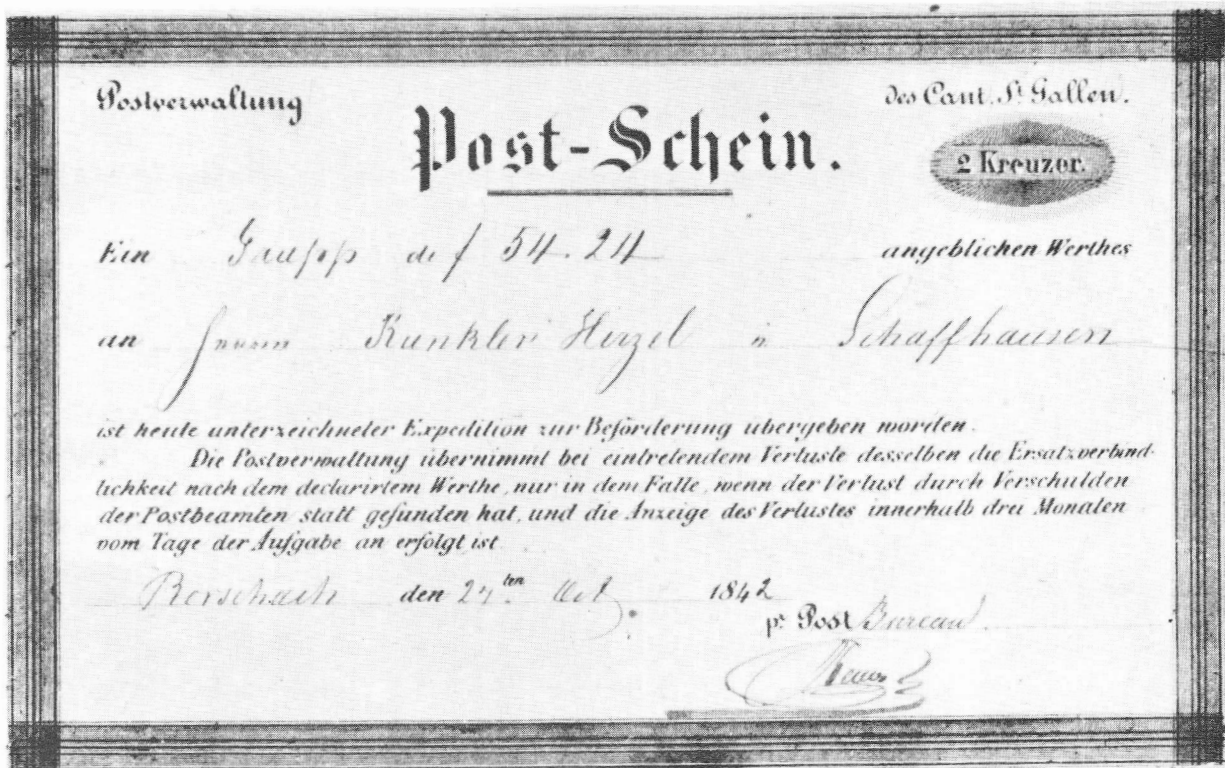 Postverwaltung
des Cant. St. Gallen.
Post-Schein.
2 Kreuzer.
Ein f 54.24 angeblichen Werthes
an Herrn Kunkler Hirzel in Schaffhausen
ist heute unterzeichneter Expedition zur Beförderung übergeben worden.
Die Postverwaltung übernimmt bei eintretendem Verluste desselben die Ersatzverbind-
lichkeit nach dem declarirtem Werthe, nur in dem Falle, wenn der Verlust durch Verschulden
der Postbeamten statt gefunden hat, und die Anzeige des Verlustes innerhalb drei Monaten
vom Tage der Aufgabe an erfolgt ist
Rorschach den 27ten Oct 1842
pr Post Bureau